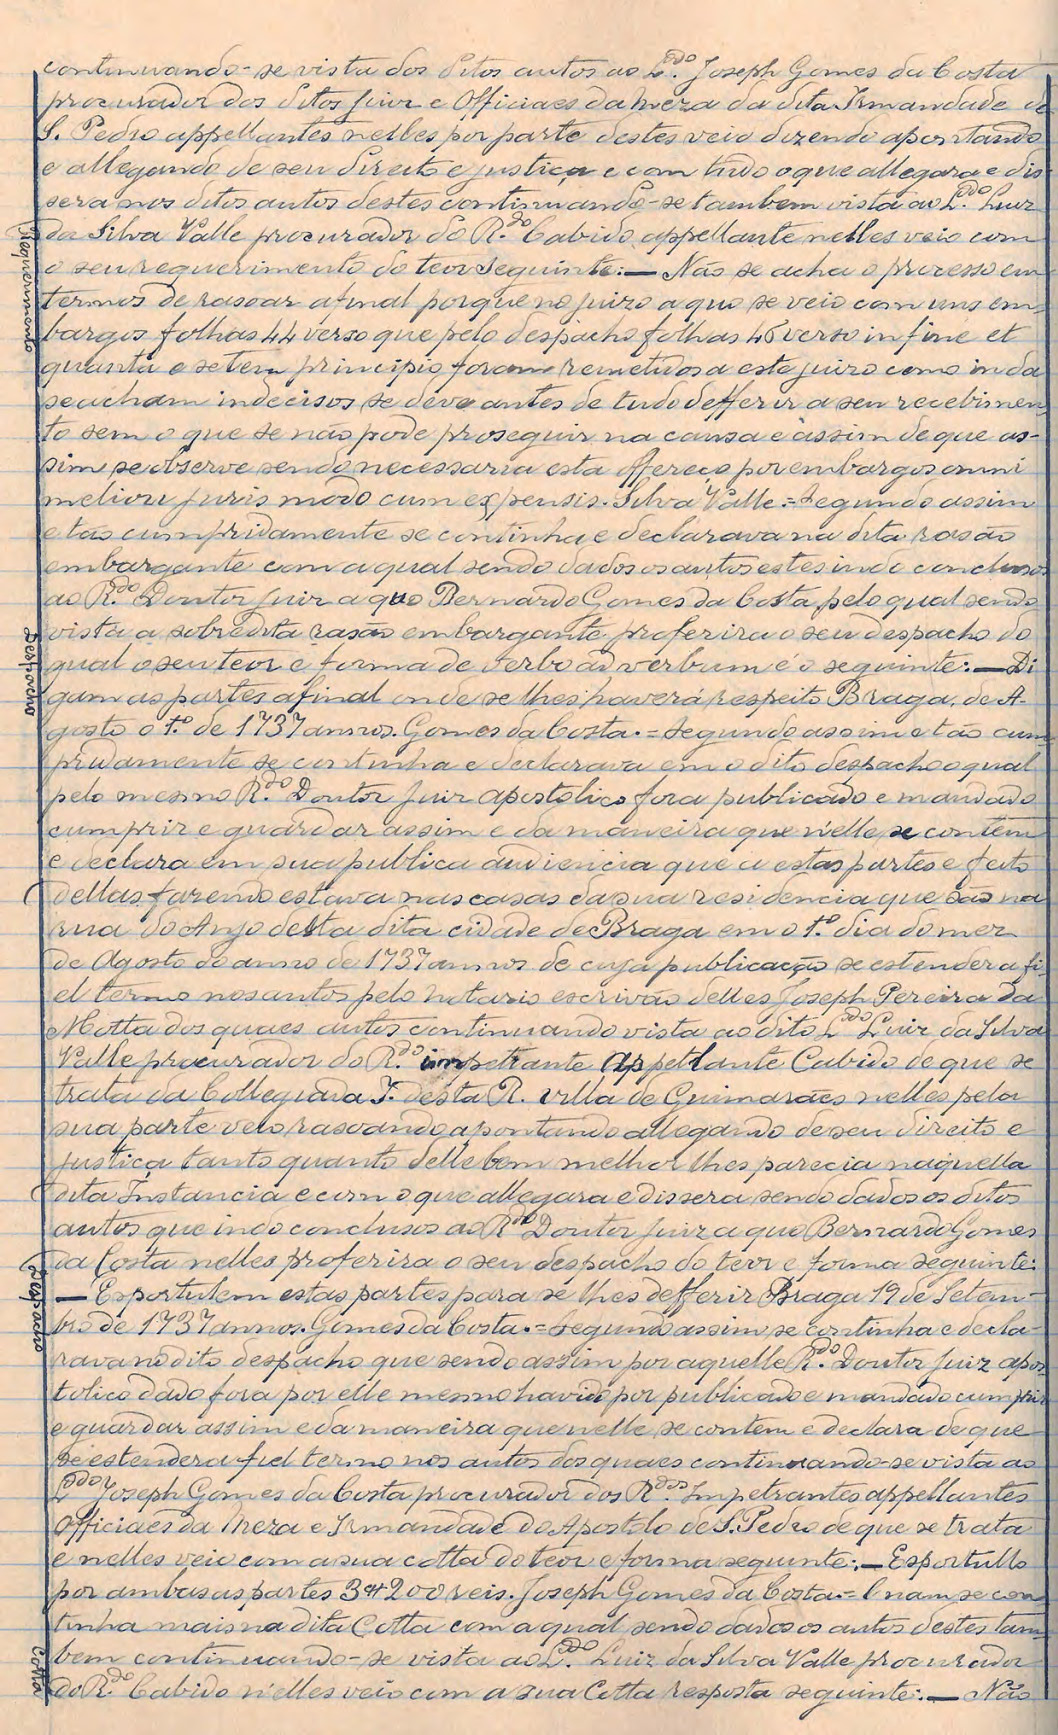 continuando-se vista dos ditos autos ao L.do Joseph Gomes da Costa
procurador dos ditos Juiz e Officiaes da meza da dita Irmandade de
S. Pedro appellantes nelles por parte destes veio dizendo apontando
e allegando de seu direito e justiça e com tudo o que allegara e dis
sera nos ditos autos destes continuando-se tambem vista ao L.do Luiz
da Silva Valle procurador do R.do Cabido appellante nelles veio com
Requerimento
o seu requerimento do teor seguinte:— Não se acha o processo em
termos de rasoar afinal porque no juizo a quo se veio com uns em
bargos folhas 44 verso que pelo despacho folhas 46 verso in fine et
quanta e setem principio foram remetidos a este juizo como inda
se acham indecisos se deve antes de tudo defferir a seu recebimen
to sem o que se não pode proseguir na causa e assim de que as-
sim se observe sendo necessaria esta offereço por embargos omni
meliori juris modo cum expensis. Silva Valle.= Segundo assim
e tão cumpridamente se continha e declarava na dita rasão
embargante com a qual sendo dados os autos estes indo conclusos
ao R.do Doutor Juiz a quo Bernardo Gomes da Costa pelo qual sendo
vista a sobredita rasão embargante proferira o seu despacho do
Despacho
qual o seu teor e forma de verbo ad verbum é o seguinte:— Di
gam as partes afinal onde se lhes haverá respeito Braga, de A-
gosto o 1.º de 1737 annos. Gomes da Costa.= Segundo assim e tão cum
pridamente se continha e declarava em o dito despacho o qual
pelo mesmo R.do Doutor Juiz apostolico fora publicado e mandado
cumprir e guardar assim e da maneira que n'elle se contem
e declara em sua publica audiencia que a estas partes e feito
dellas fazendo estava nas casas da sua residencia que são na
rua do Anjo desta dita cidade de Braga em o 1.º dia do mez
de Agosto do anno de 1737 annos de cuja publicação se estendera fi-
el termo nos autos pelo notario escrivão delles Joseph Pereira da
Motta dos quaes autos continuando vista ao dito L.do Luiz da Silva
Valle procurador do R.do impetrante Appellante Cabido de que se
trata da Collegiada I. desta R. villa de Guimarães nelles pela
sua parte veio rasoando apontando allegando de seu direito e
justiça tanto quanto delle bem melhor lhes parecia naquella
dita Instancia e com o que allegara e dissera sendo dados os ditos
autos que indo conclusos ao R.do Doutor Juiz a quo Bernardo Gomes
da Costa nelles proferira o seu despacho do teor e forma seguinte:
Despacho
— Esportulem estas partes para se lhes defferir Braga 19 de Setem-
bro de 1737 annos. Gomes da Costa.= Segundo assim se continha e decla-
rava no dito despacho que sendo assim por aquelle R.do Doutor Juiz apos
tolico dado fora por elle mesmo havido por publicado e mandado cumprir
e guardar assim e da maneira que nelle se contem e declara de que
se estendera fiel termo nos autos dos quaes continuando-se vista ao
L.do Joseph Gomes da Costa procurador dos R.dos Impetrantes appellantes
Officiaes da Meza e Irmandade do Apostolo de S. Pedro de que se trata
e nelles veio com a sua cotta do teor e forma seguinte:— Esportullo
por ambas as partes 3$200 reis. Joseph Gomes da Costa.= E nam se con
tinha mais na dita Cotta com a qual sendo dados os autos destes tam
bem continuando-se vista ao L.do Luiz da Silva Valle procurador
Cotta
do R.do Cabido n'elles veio com a sua Cotta resposta seguinte:— Não